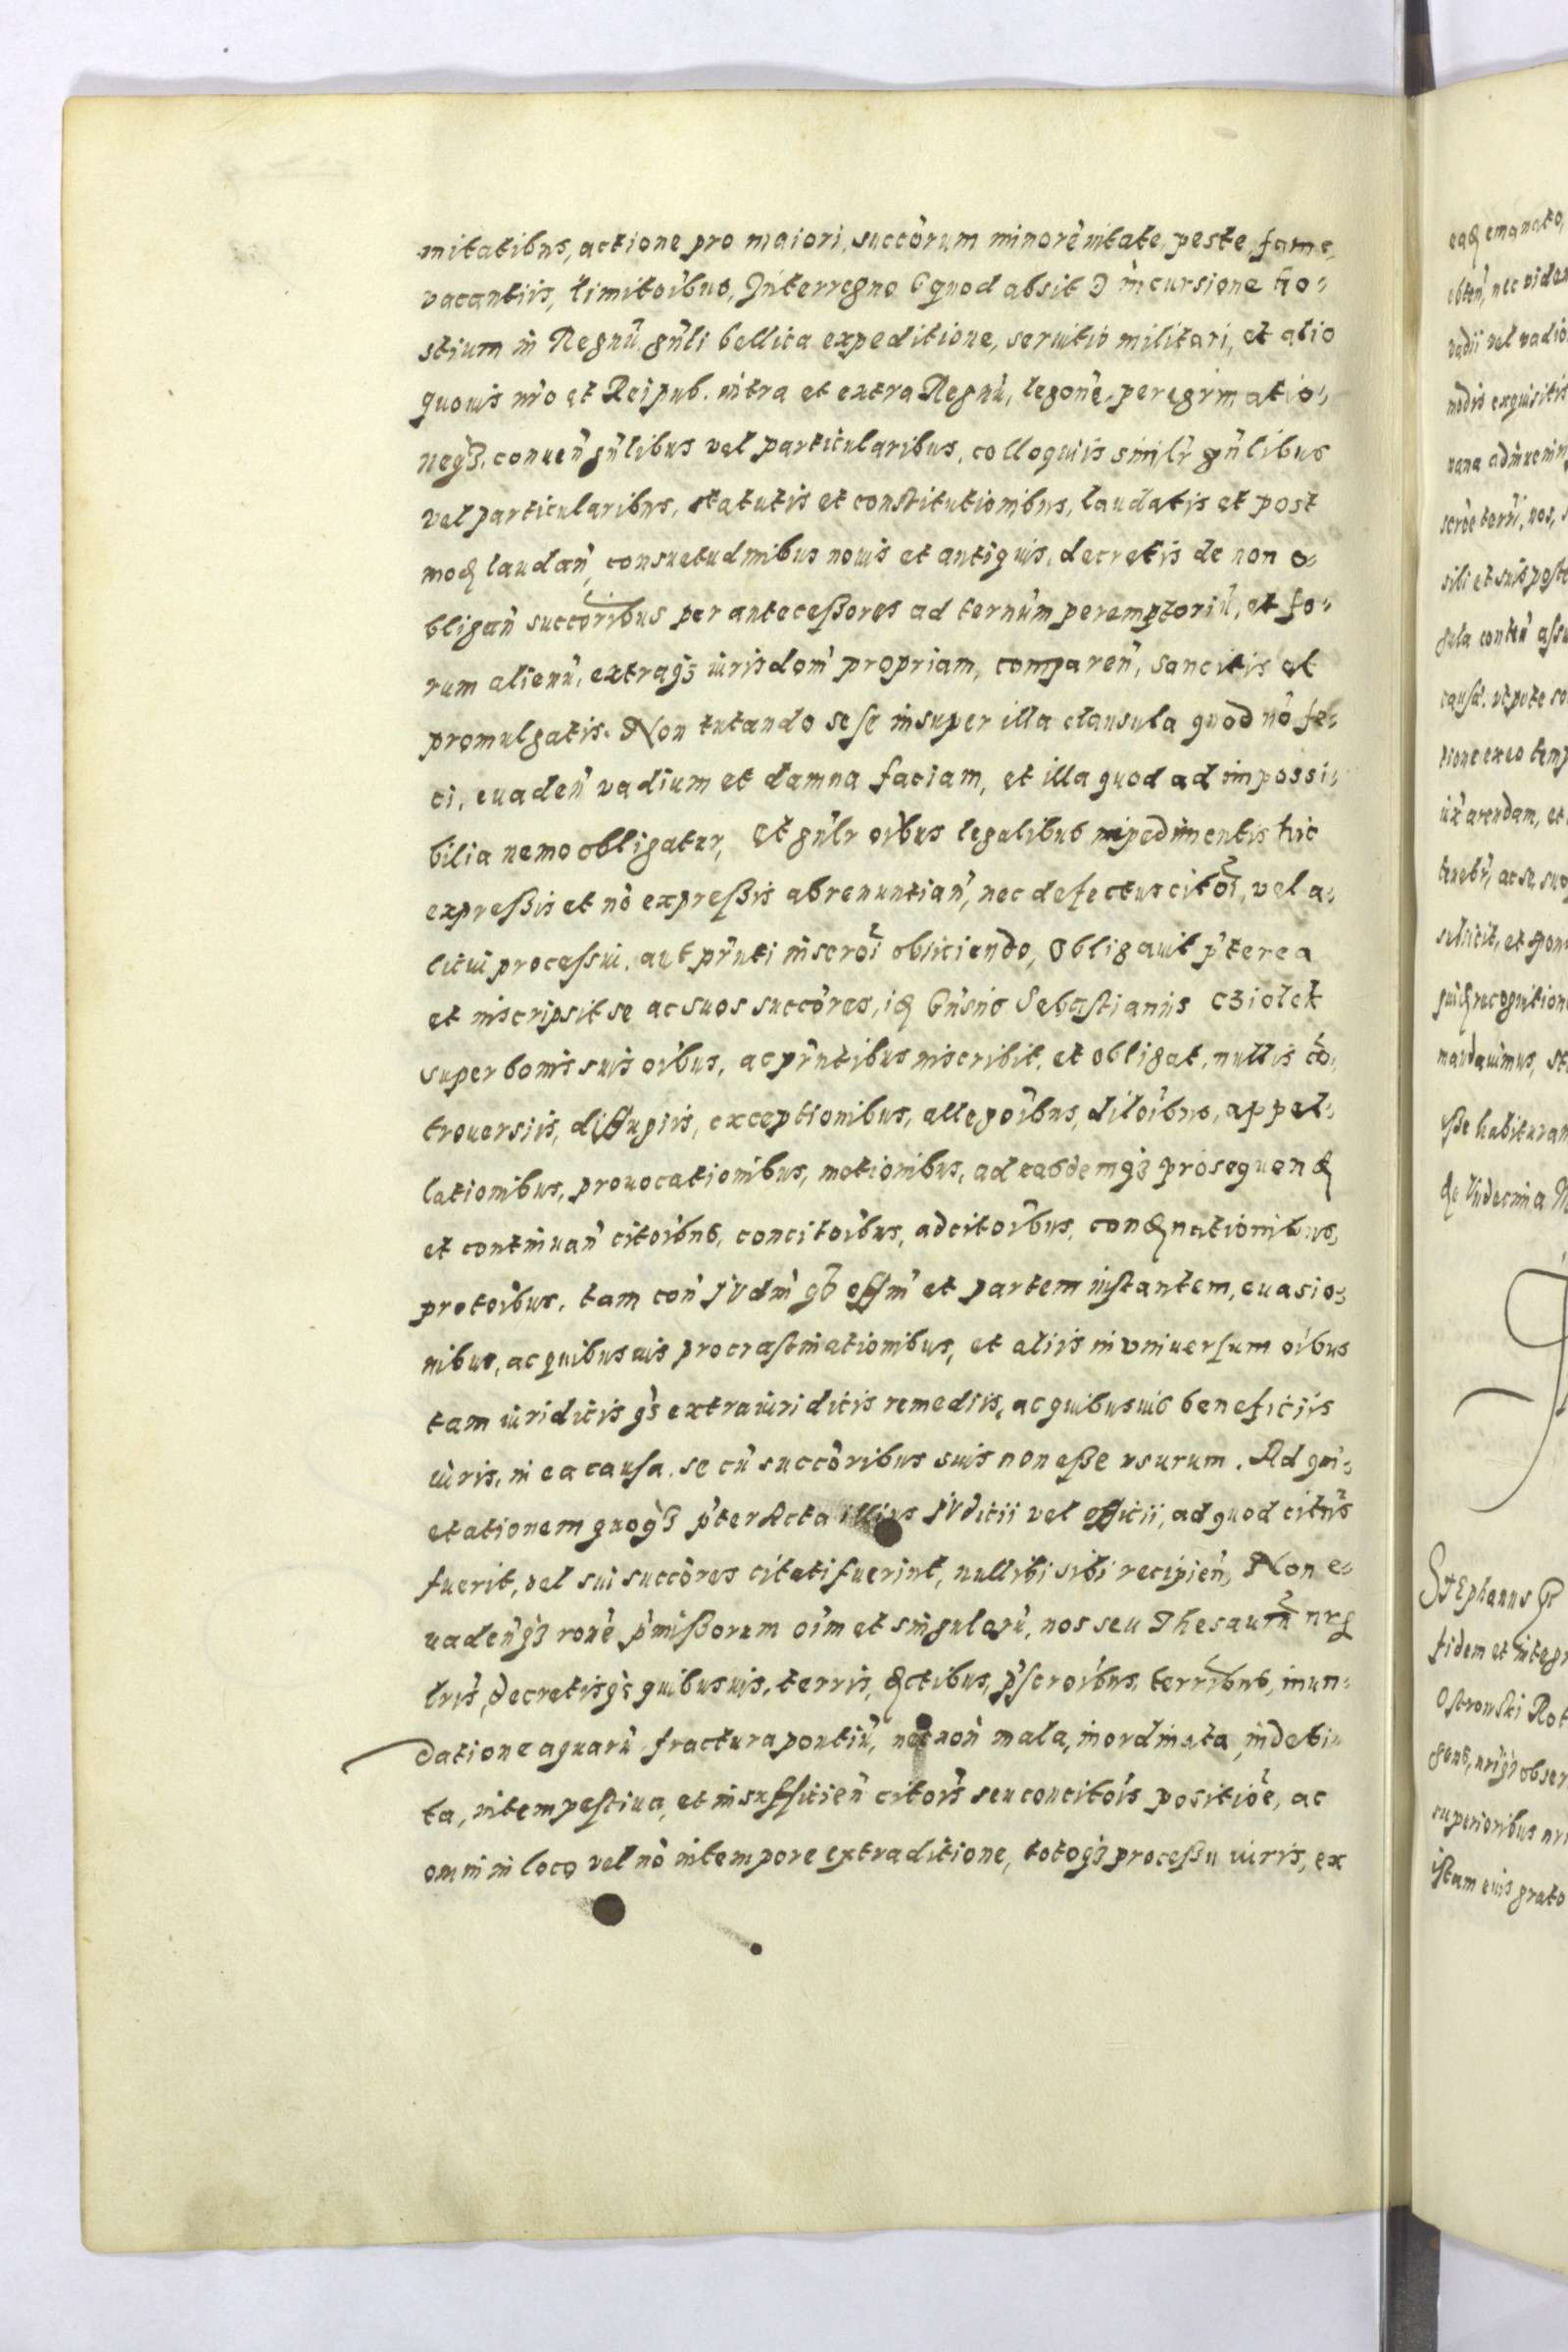 mitatibus, actione pro maiori, succorum minorenitate, peste, fame,
vacantiis, limitoibus, Interregno (quod absit) incursione ho-
stium in Regnu gnli bellica expeditione, seruitio militari, et alio
quouis nro et Reipub. intra et extra Regnu, legone, peregrinatio-
neqз, conuen gnlibus vel particularibus, colloquiis simili gnlibus
vel particularibus, statutis et constitutionibus, laudatis et post
mod laudan, consuetudinibus nouis et antiquis, decretis de non o-
bligan succoribus per antecessores ad ternum peremptoriu, et fo-
rum alienu, extraqз iurisdom propriam, comparen, sancitis et
promulgatis. Non tutando sese insuper illa clausula quod no fe-
ci, euaden vadium et damna faciam, et illa quod ad impossi-
bilia nemo obligatur, et gnlr oibus legalibus impedimentis hic
expressis et no expressis abrenuntian, nec defectus citoi, vel a-
licui processui, aut pnti inscroi obiiciendo, Obligauit pterea
et inscripsit se ac suos succores, id Gnsus Sebastianus Cziolek
super bonis suis oibus, ac pntibus inscribit, et obligat, nullis co-
trouersiis, diffugiis, exceptionibus, allegoibus, diloibus, appel-
lationibus, prouocationibus, motionibus, ad easdemqз prosequend
et continuan citoibus, concitoibus, adcitoibus, condnationibus,
protoibus, tam con Iudm qз offm et partem instantem, euasio-
nibus, ac quibusuis procrastinationibus, et aliis in vniuersum oibus
tam iuridicis qз extraiuridicis remediis, ac quibusuis beneficiis
iuris, in ea causa se cu succoribus suis non esse vsurum. Ad qui-
etationem quoqз pter Acta illius Iudicii vel officii, ad quod citus
fuerit, vel sui succores citati fuerint, nullibi sibi recipien, Non e-
uadenqз rone pmissorum oim et singuloru, nos seu Thesauru nr
lris, decretisqз quibusuis, terris, dctibus, pscroibus, terribus, inun-
datione aquaru fractura pontiu, necnon mala, inordinata, indebi-
ta, intempestiua, et insufficien citois seu concitois positioe, ac
omni in loco vel no in tempore extraditione, totoqз processu iuris, ex